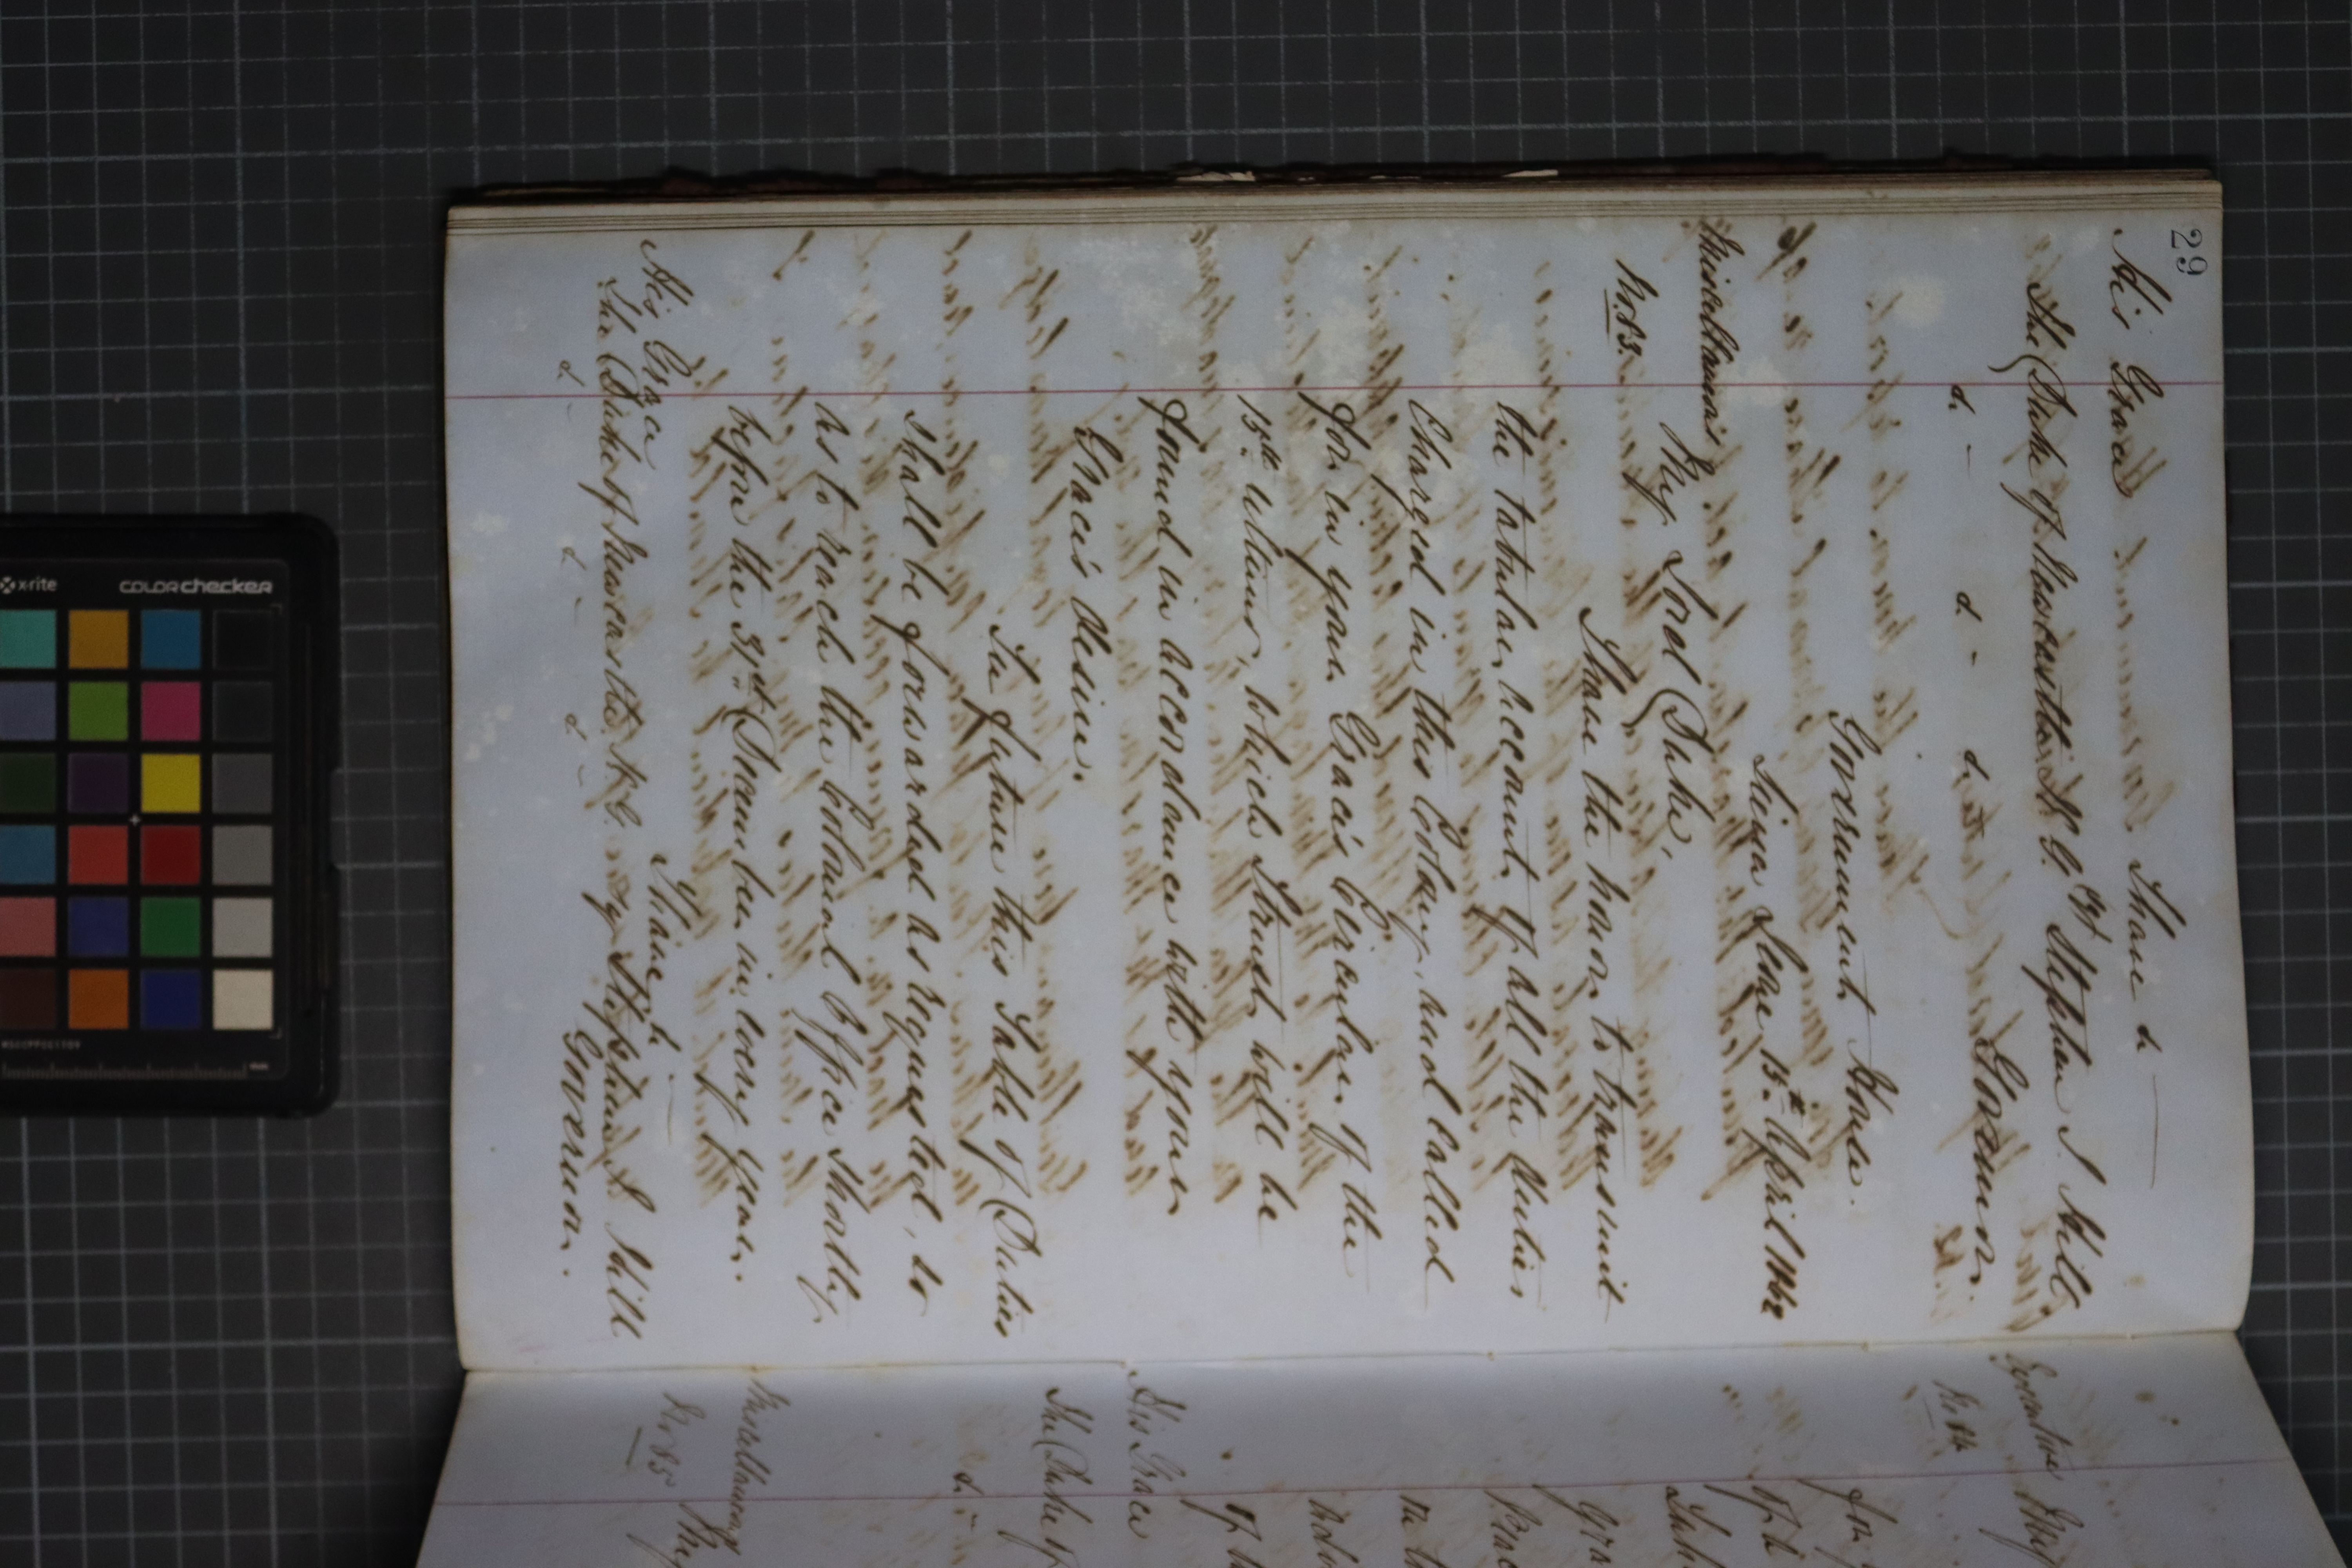 29
His Grace I have &
The Duke of Newcastle K.G. Stephen J Hill,
&. &. &. Governor.
Government House.
Sierra Leone 15th April 1862
Miscellaneous
No. 83.
My Lord Duke,
I have the honor to transmit
the tabular account of all the duties
Charged in this Colony, and called
for in your Grace's Circular of the
15th Ultimo, which I trust will be
found in accordance with your
Grace's desire.
In future this Table of Duties
shall be forwarded as requested, so
as to reach the Colonial Office shortly
before the 31st December in every year.
I have &
His Grace
The Duke of Newcastle K.G. Stephen J Hill
&. &. &. Governor.
Executive
No 84
for
of th
His Grace
The Duke of
&.
Miscellaneous
No 85
My